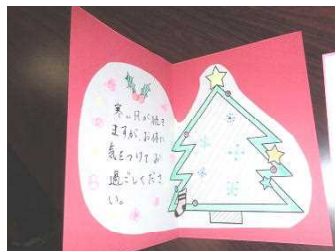 寒い日が続き
ますが、お体に
気をつけてお
過ごしくださ
い。